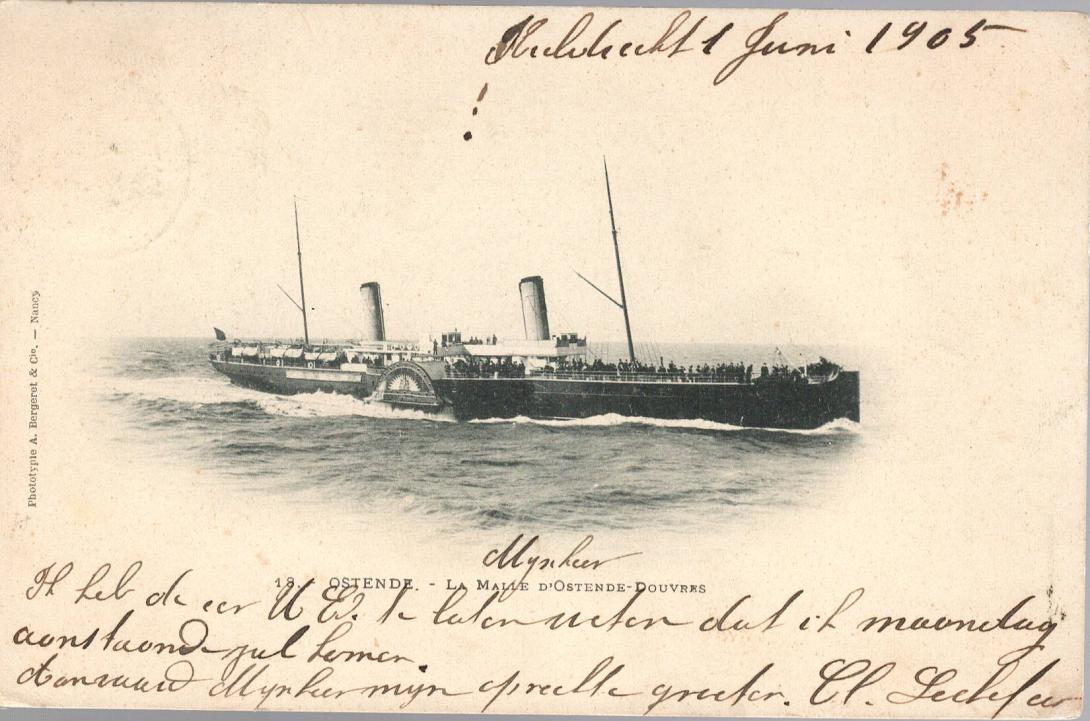 Kieldrecht 1 Juni 1905
!
Phototypie A. Bergeret & Cie. — Nancy
Mynheer
18. OSTENDE. - La Malle d'Ostende-Douvres
Ik heb de eer U Ed. te laten weten dat ik maandag
aonstaande zal komen.
Aanvaard Mynheer mijn oprechte groeten. Cl.